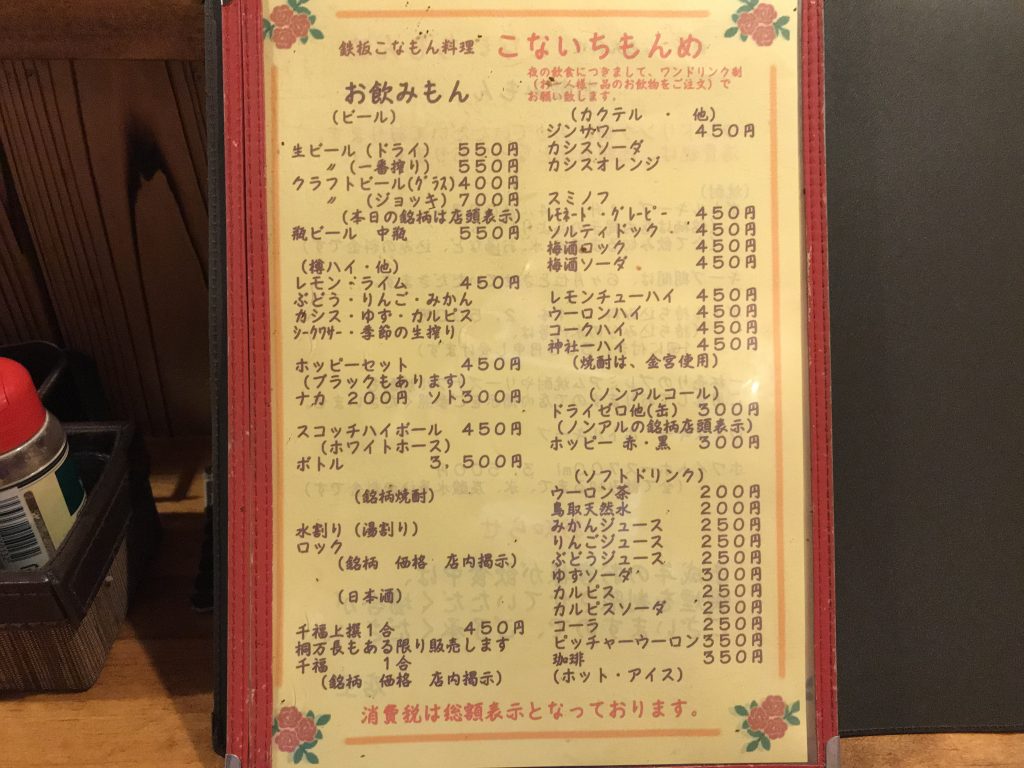 鉄板こなもん料理 こないちもんめ
夜の飲食につきまして、ワンドリンク制
(お一人様一品のお飲物をご注文)で
お願い致します。
お飲みもん
(ビール)
生ビール(ドライ) 550円
〃(一番搾り) 550円
クラフトビール(グラス)400円
〃 (ジョッキ)700円
(本日の銘柄は店頭表示)
瓶ビール 中瓶 550円
(樽ハイ・他)
レモン・ライム 450円
ぶどう・りんご・みかん
カシス・ゆず・カルピス
シークワサー・季節の生搾り
ホッピーセット 450円
(ブラックもあります)
ナカ 200円 ソト300円
スコッチハイボール 450円
(ホワイトホース)
ボトル 3,500円
(銘柄焼酎)
水割り(湯割り)
ロック
(銘柄 価格 店内掲示)
(日本酒)
千福上撰1合 450円
桐万長もある限り販売します
千福 1合
(銘柄 価格 店内掲示)
(カクテル ・ 他)
ジンサワー 450円
カシスソーダ
カシスオレンジ
スミノフ
レモネード・グレーピー 450円
ソルティドック・ 450円
梅酒ロック 450円
梅酒ソーダ 450円
レモンチューハイ 450円
ウーロンハイ 450円
コークハイ 450円
神社ーハイ 450円
(焼酎は、金宮使用)
(ノンアルコール)
ドライゼロ他(缶) 300円
(ノンアルの銘柄店頭表示)
ホッピー 赤・黒 300円
(ソフトドリンク)
ウーロン茶 200円
鳥取天然水 200円
みかんジュース 250円
りんごジュース 250円
ぶどうジュース 250円
ゆずソーダ 300円
カルピス 250円
カルピスソーダ 250円
コーラ 250円
ピッチャーウーロン350円
珈琲 350円
(ホット・アイス)
消費税は総額表示となっております。